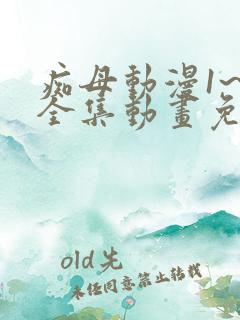 痴母動漫1~
全集動畫免
old先
未任同意禁止转载